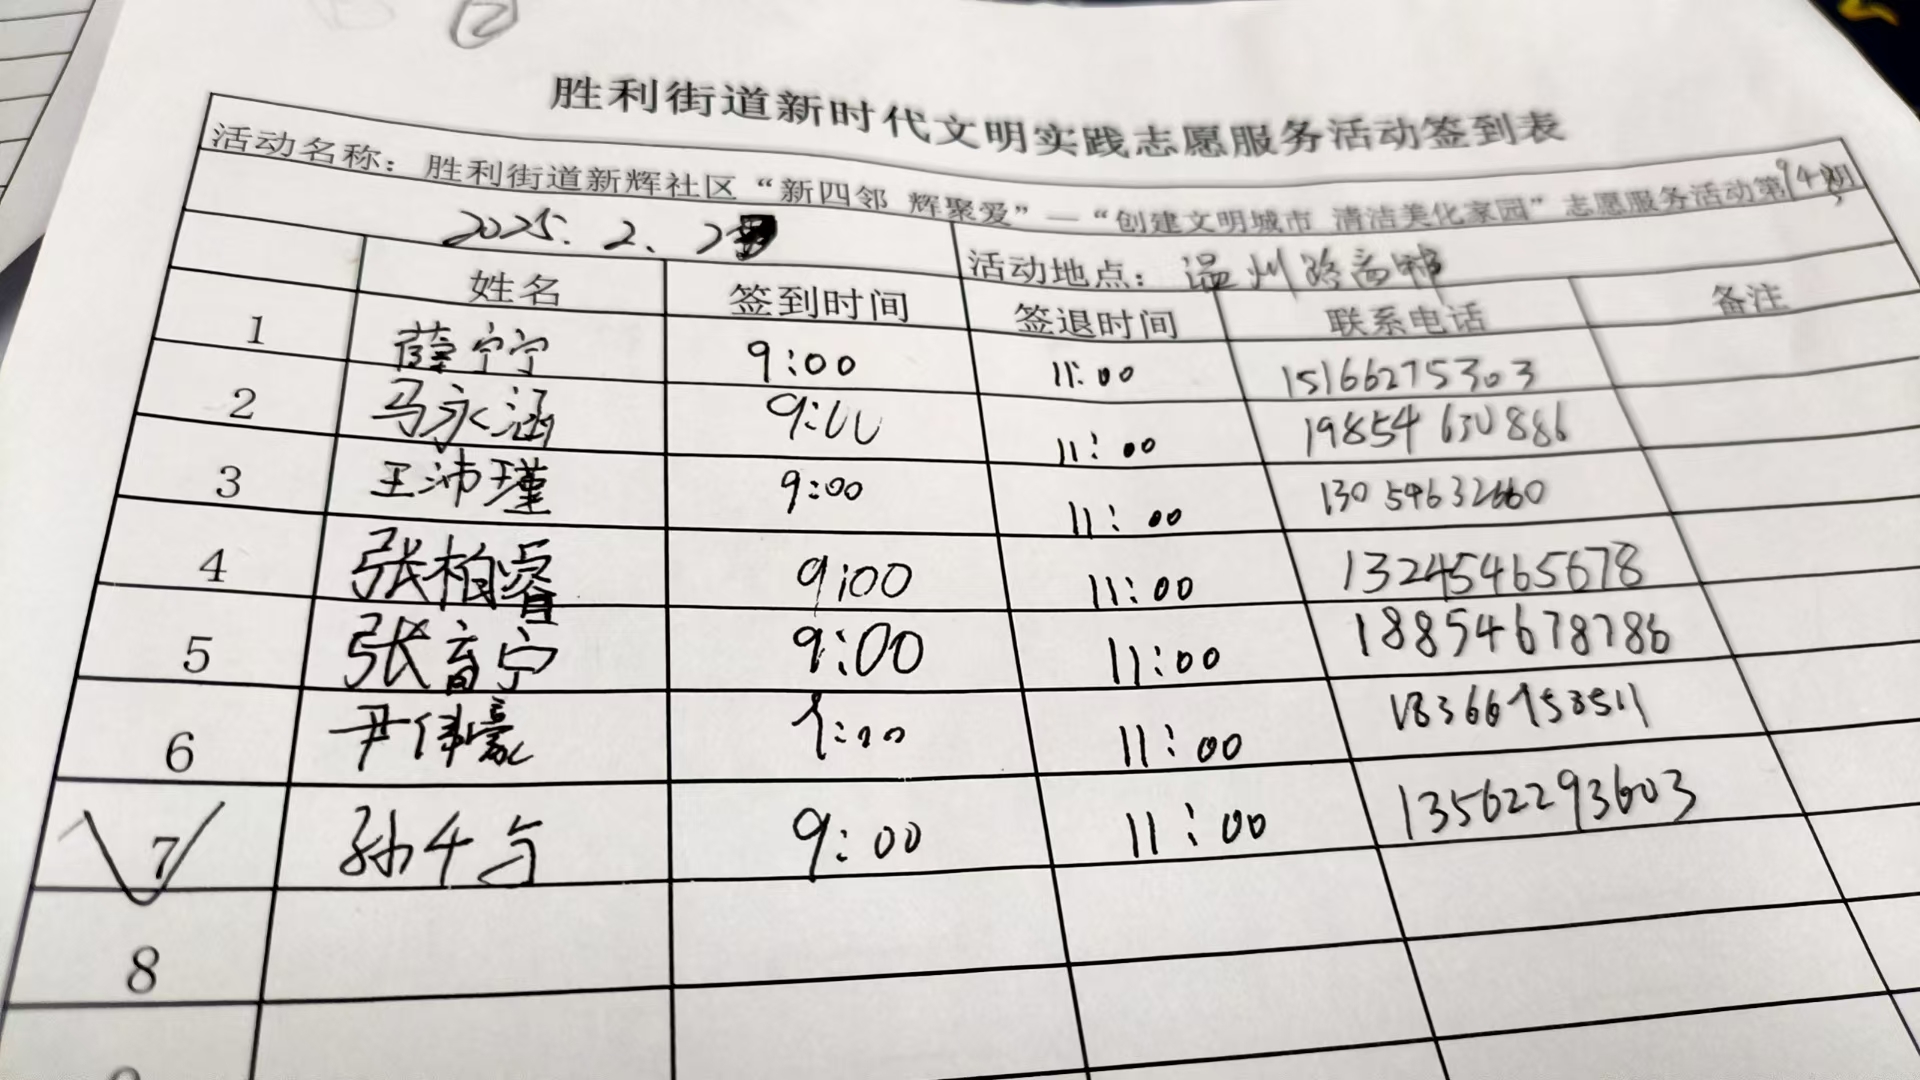 2
胜利街道新时代文明实践志愿服务活动签到表
活动名称：胜利街道新辉社区“新四邻 辉聚爱”—“创建文明城市 清洁美化家园”志愿服务活动第94期
2025.2.2 活动地点：温州路
姓名 签到时间 签退时间 联系电话 备注
1 薛宁宁 9:00 11:00 15166275303
2 马永涵 9:00 11:00 19854630886
3 王沛瑾 9:00 11:00
4 张柏睿 9:00 11:00 13245465678
5 张育宁 9:00 11:00 18854678786
6 尹伟豪 9:00 11:00
7 孙千 9:00 11:00 13562293603
8